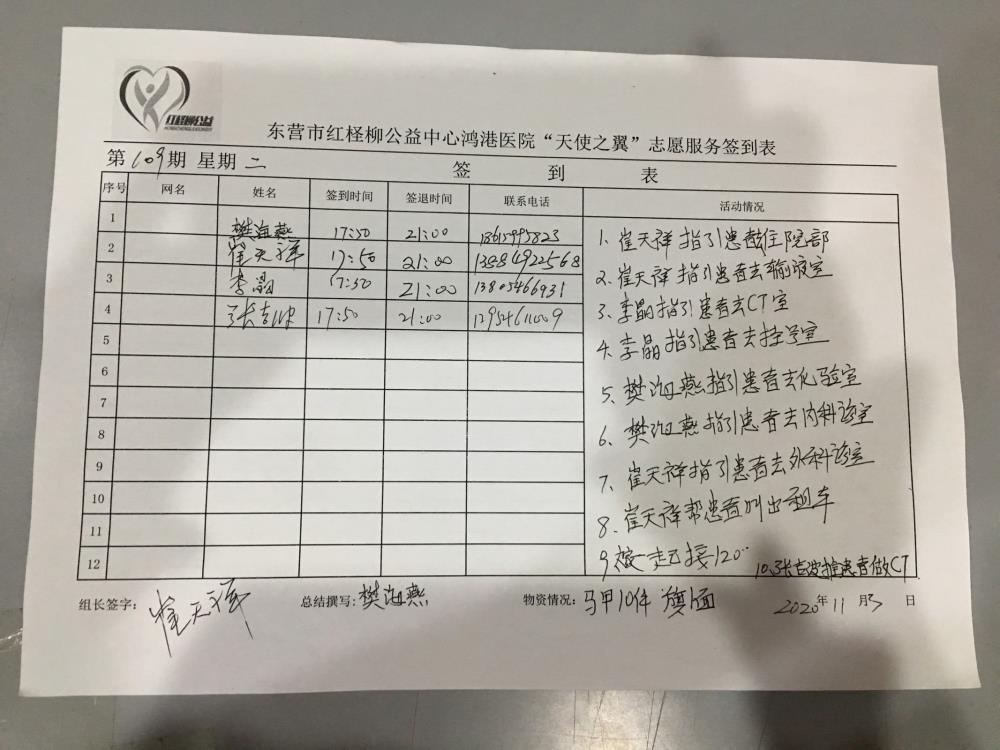 红柽柳公益
东营市红柽柳公益中心鸿港医院“天使之翼”志愿服务签到表
第109期 星期二 签到表
序号 网名 姓名 签到时间 签退时间 联系电话 活动情况
1 樊海燕 17:50 21:00
2 崔天祥 17:50 21:00 13884922568
3 李晶 17:50 21:00 13805466931
4 17:50 21:00
5
6
7
8
9
10
11
12
1、崔天祥指引患者去住院部
2、崔天祥指引患者去输液室
3、李晶指引患者去CT室
4、李晶指引患者去挂号室
5、樊海燕指引患者去化验室
6、樊海燕指引患者去内科诊室
7、崔天祥指引患者去外科诊室
8、崔天祥帮患者叫出租车
9、一起接120
10、推患者做CT
组长签字：崔天祥 总结撰写：樊海燕 物资情况：马甲10件 旗1面 2020年11月3日